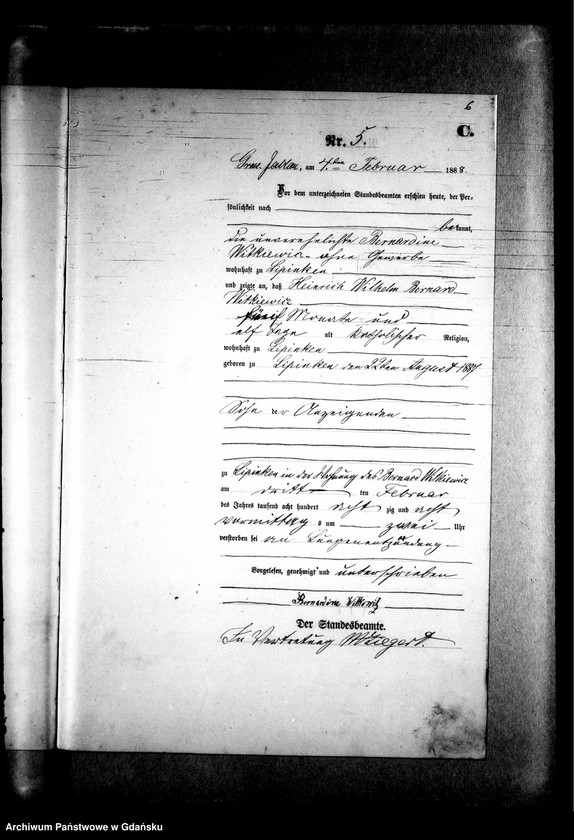 6
C.
Nr. 5.
am 4ten Februar 1888.
Vor dem unterzeichneten Standesbeamten erschien heute, der Per-
sönlichkeit nach
bekannt,
die unverehelichte Bernardine
Witkiewicz ohne Gewerbe
wohnhaft zu Lipinken
und zeigte an, daß Heinrich Wilhelm Bernard
Witkiewicz
fünf Monate und
elf Tage alt katholischer Religion,
wohnhaft zu Lipinken
geboren zu Lipinken den 22ten August 1887
Sohn der Anzeigenden
zu Lipinken in der Wohnung des Bernard Witkiewicz
am dritten Februar
des Jahres tausend acht hundert acht zig und acht
vormittag s um zwei Uhr
verstorben sei an Lungenentzündung
Vorgelesen, genehmigt und unterschrieben
Bernardine
Der Standesbeamte.
In Vertretung
Archiwum Państwowe w Gdańsku